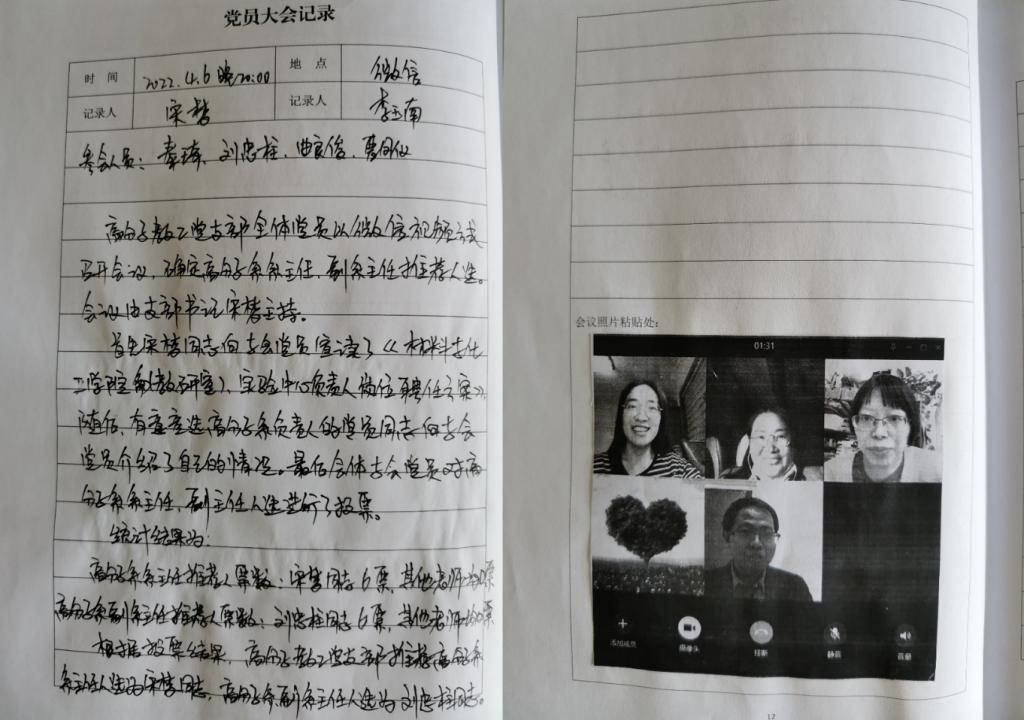 党员大会记录
时 间 2022.4.6 晚20:00 地 点 微信
记录人 宋梦 记录人 李玉南
参会人员: 秦瑾、刘忠柱、曲良俊、曹同仙
高分子教工党支部全体党员以微信视频方式
召开会议,确定高分子系系主任、副系主任推荐人选。
会议由支部书记宋梦主持。
首先宋梦同志向与会党员宣读了《材料学化
工学院系(教研室)、实验中心负责人岗位聘任方案》,
随后,有意竞选高分子系负责人的党员同志向与会
党员介绍了自己的情况。最后全体与会党员对高
分子系系主任、副主任人选进行了投票。
统计结果为:
高分子系系主任推荐人票数:宋梦同志6票,其他老师均0票
高分子系副系主任推荐人票数:刘忠柱同志6票,其他老师均0票
根据投票结果,高分子教工党支部推荐高分子系
系主任人选为宋梦同志,高分子系副系主任人选为刘忠柱同志。
会议照片粘贴处:
01:31
添加成员 摄像头 挂断 静音 音量
17